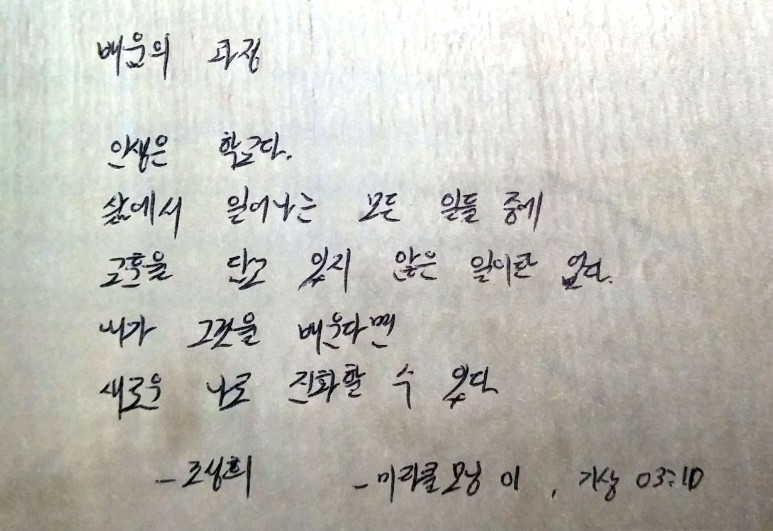 배움의 과정
인생은 학교다.
삶에서 일어나는 모든 일들 중에
교훈을 담고 있지 않은 일이란 없다.
내가 그것을 배운다면
새로운 나로 진화할 수 있다
-조성희 -미라클모닝 01, 기상 03:10